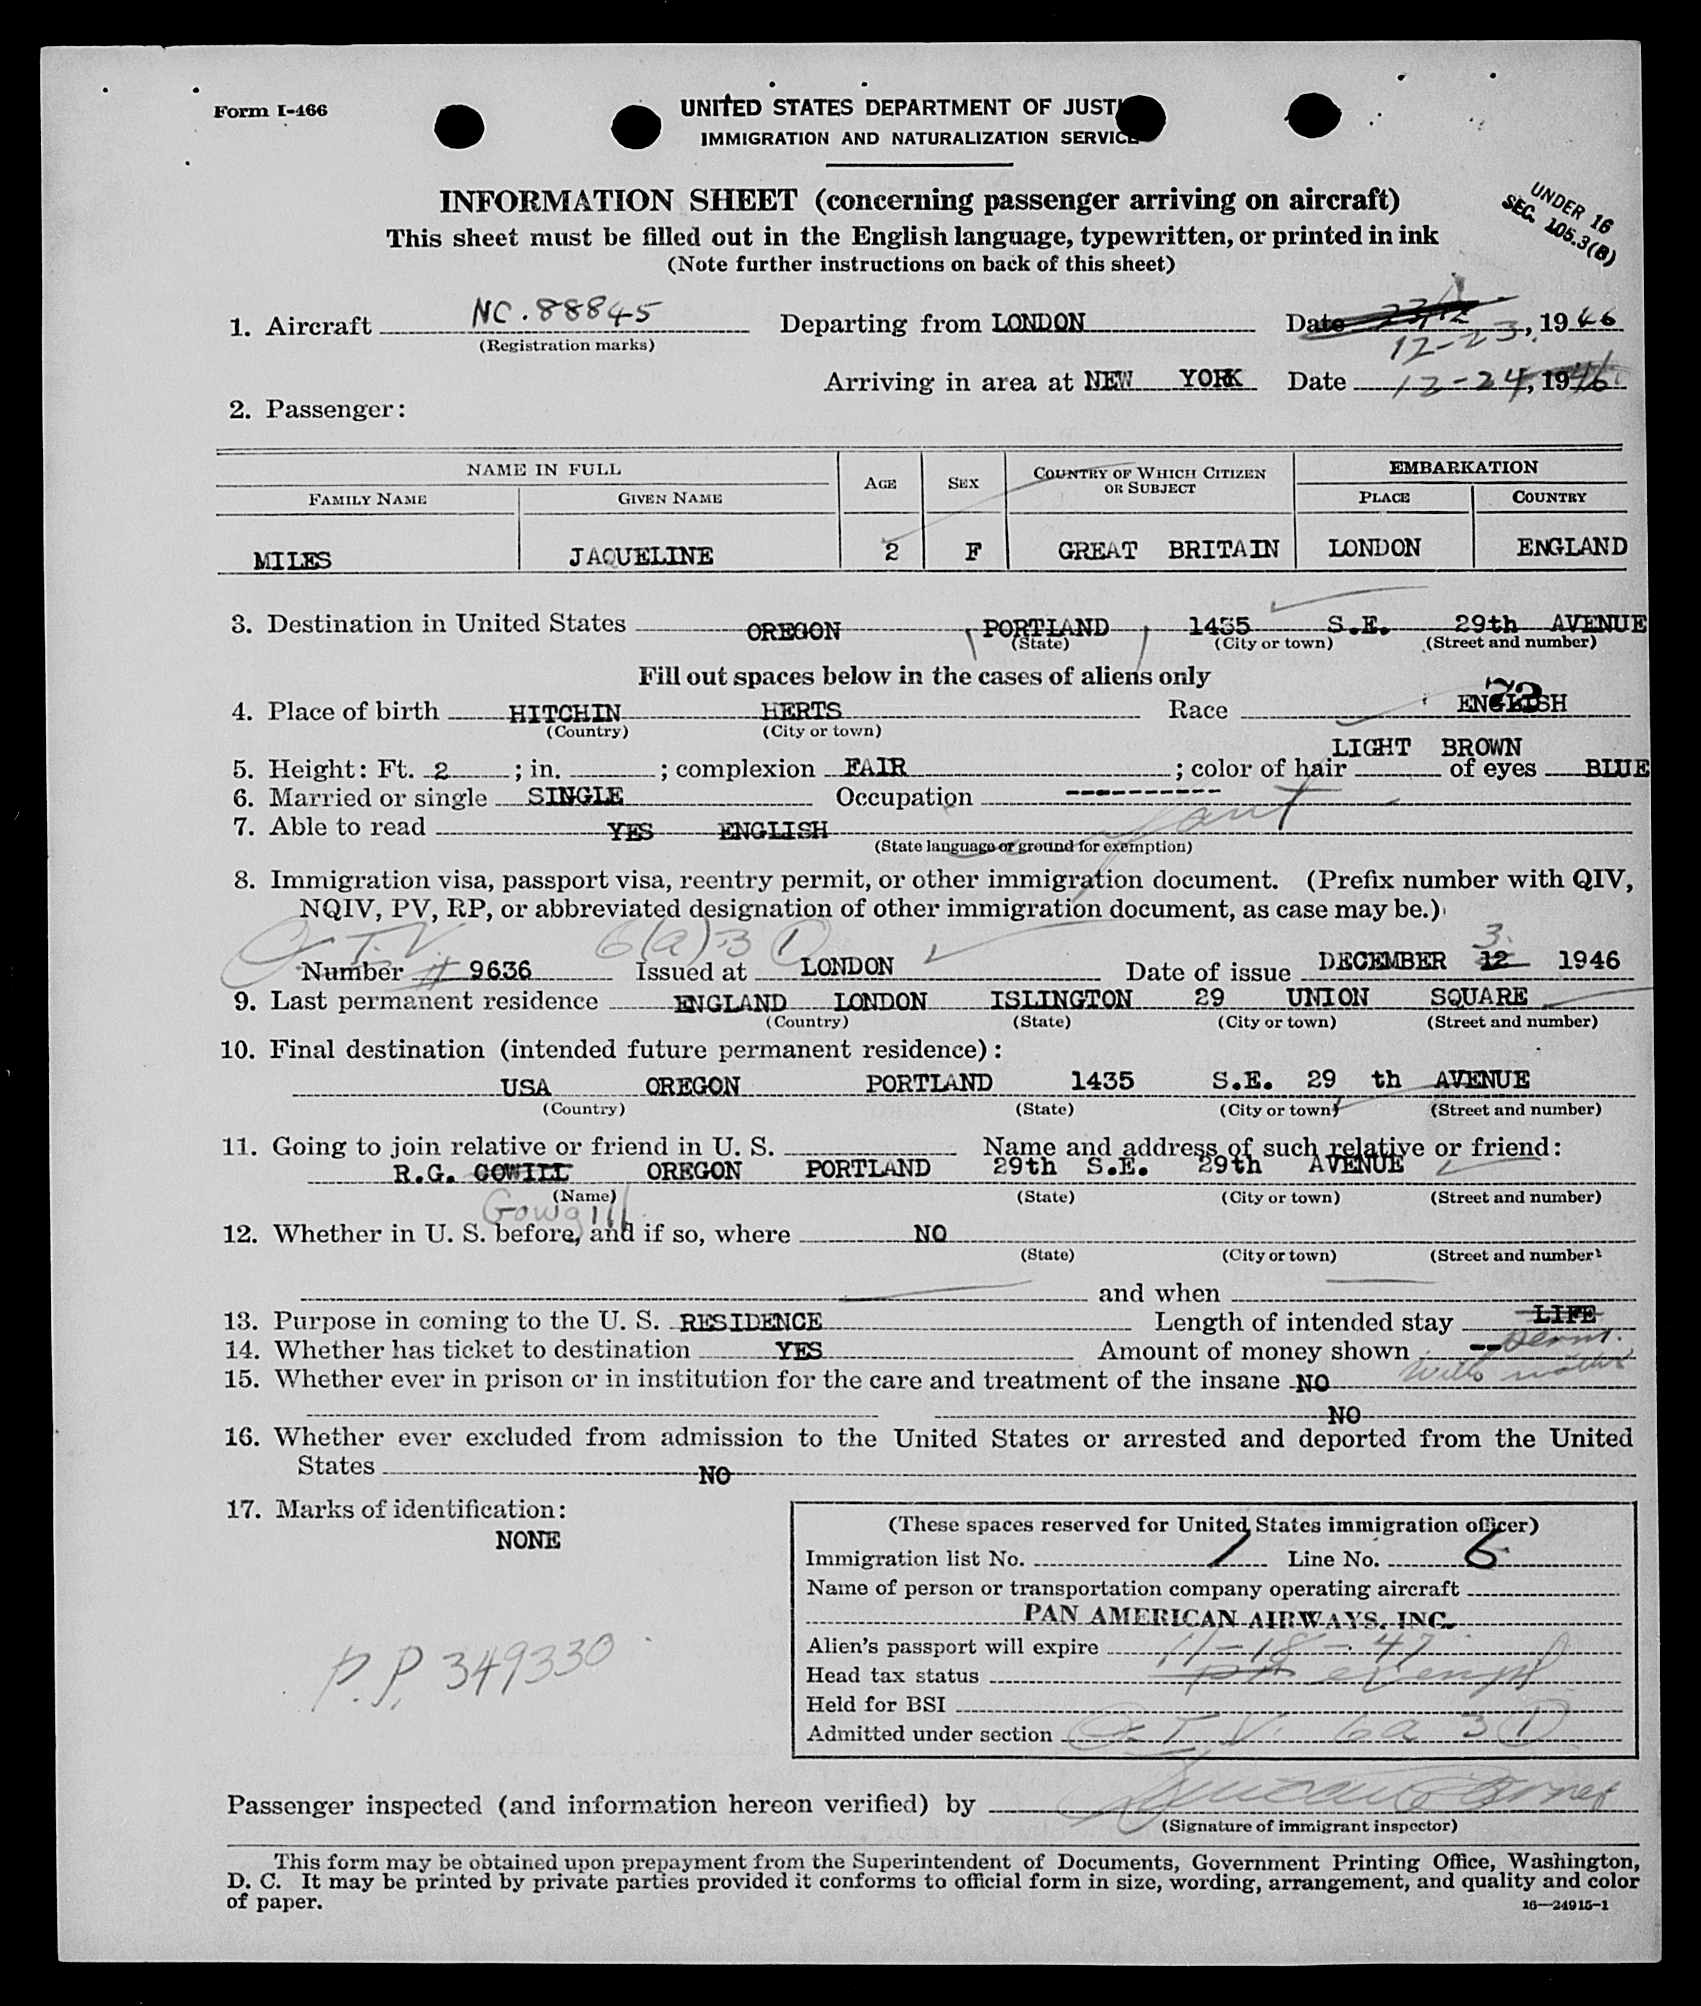 Form I-466
UNITED STATES DEPARTMENT OF JUSTI
IMMIGRATION AND NATURALIZATION SERVICE
INFORMATION SHEET (concerning passenger arriving on aircraft)
UNDER 16
SEC. 105.3(B)
This sheet must be filled out in the English language, typewritten, or printed in ink
(Note further instructions on back of this sheet)
1. Aircraft NC.88845 Departing from LONDON Date 12-23, 1946
(Registration marks)
Arriving in area at NEW YORK Date 12-24, 1946
2. Passenger:
NAME IN FULL AGE SEX COUNTRY OF WHICH CITIZEN OR SUBJECT EMBARKATION
FAMILY NAME GIVEN NAME PLACE COUNTRY
MILES JAQUELINE 2 F GREAT BRITAIN LONDON ENGLAND
3. Destination in United States OREGON PORTLAND 1435 S.E. 29th AVENUE
(State) (City or town) (Street and number)
Fill out spaces below in the cases of aliens only
4. Place of birth HITCHIN HERTS Race ENGLISH 73
(Country) (City or town)
LIGHT BROWN
5. Height: Ft. 2 ; in. ; complexion FAIR ; color of hair of eyes BLUE
6. Married or single SINGLE Occupation ----------
7. Able to read YES ENGLISH
(State language or ground for exemption)
8. Immigration visa, passport visa, reentry permit, or other immigration document. (Prefix number with QIV,
NQIV, PV, RP, or abbreviated designation of other immigration document, as case may be.)
6(a)3 1 3.
Number # 9636 Issued at LONDON Date of issue DECEMBER 12 1946
9. Last permanent residence ENGLAND LONDON ISLINGTON 29 UNION SQUARE
(Country) (State) (City or town) (Street and number)
10. Final destination (intended future permanent residence):
USA OREGON PORTLAND 1435 S.E. 29 th AVENUE
(Country) (State) (City or town) (Street and number)
11. Going to join relative or friend in U. S. Name and address of such relative or friend:
R.G. COWILL OREGON PORTLAND 29th S.E. 29th AVENUE
(Name) (State) (City or town) (Street and number)
Gowgill
12. Whether in U. S. before, and if so, where NO
(State) (City or town) (Street and number)
and when
13. Purpose in coming to the U. S. RESIDENCE Length of intended stay LIFE
Perm.
14. Whether has ticket to destination YES Amount of money shown --
with mother
15. Whether ever in prison or in institution for the care and treatment of the insane NO
NO
16. Whether ever excluded from admission to the United States or arrested and deported from the United
States NO
17. Marks of identification:
NONE
P.P. 349330
(These spaces reserved for United States immigration officer)
Immigration list No. 1 Line No. 5
Name of person or transportation company operating aircraft
PAN AMERICAN AIRWAYS, INC.
Alien's passport will expire 11-18-47
Head tax status exempt
Held for BSI
Admitted under section Q I V. 6a 3 1
Passenger inspected (and information hereon verified) by
(Signature of immigrant inspector)
This form may be obtained upon prepayment from the Superintendent of Documents, Government Printing Office, Washington,
D. C. It may be printed by private parties provided it conforms to official form in size, wording, arrangement, and quality and color
of paper.
16—24915-1